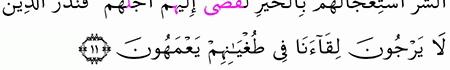 الشَّرَّ اسْتِعْجَالَهُم بِالْخَيْرِ لَقُضِىَ إِلَيْهِمْ أَجَلُهُمْ فَنَذَرُ الَّذِينَ
لَا يَرْجُونَ لِقَآءَنَا فِى طُغْيَـٰنِهِمْ يَعْمَهُونَ ١١